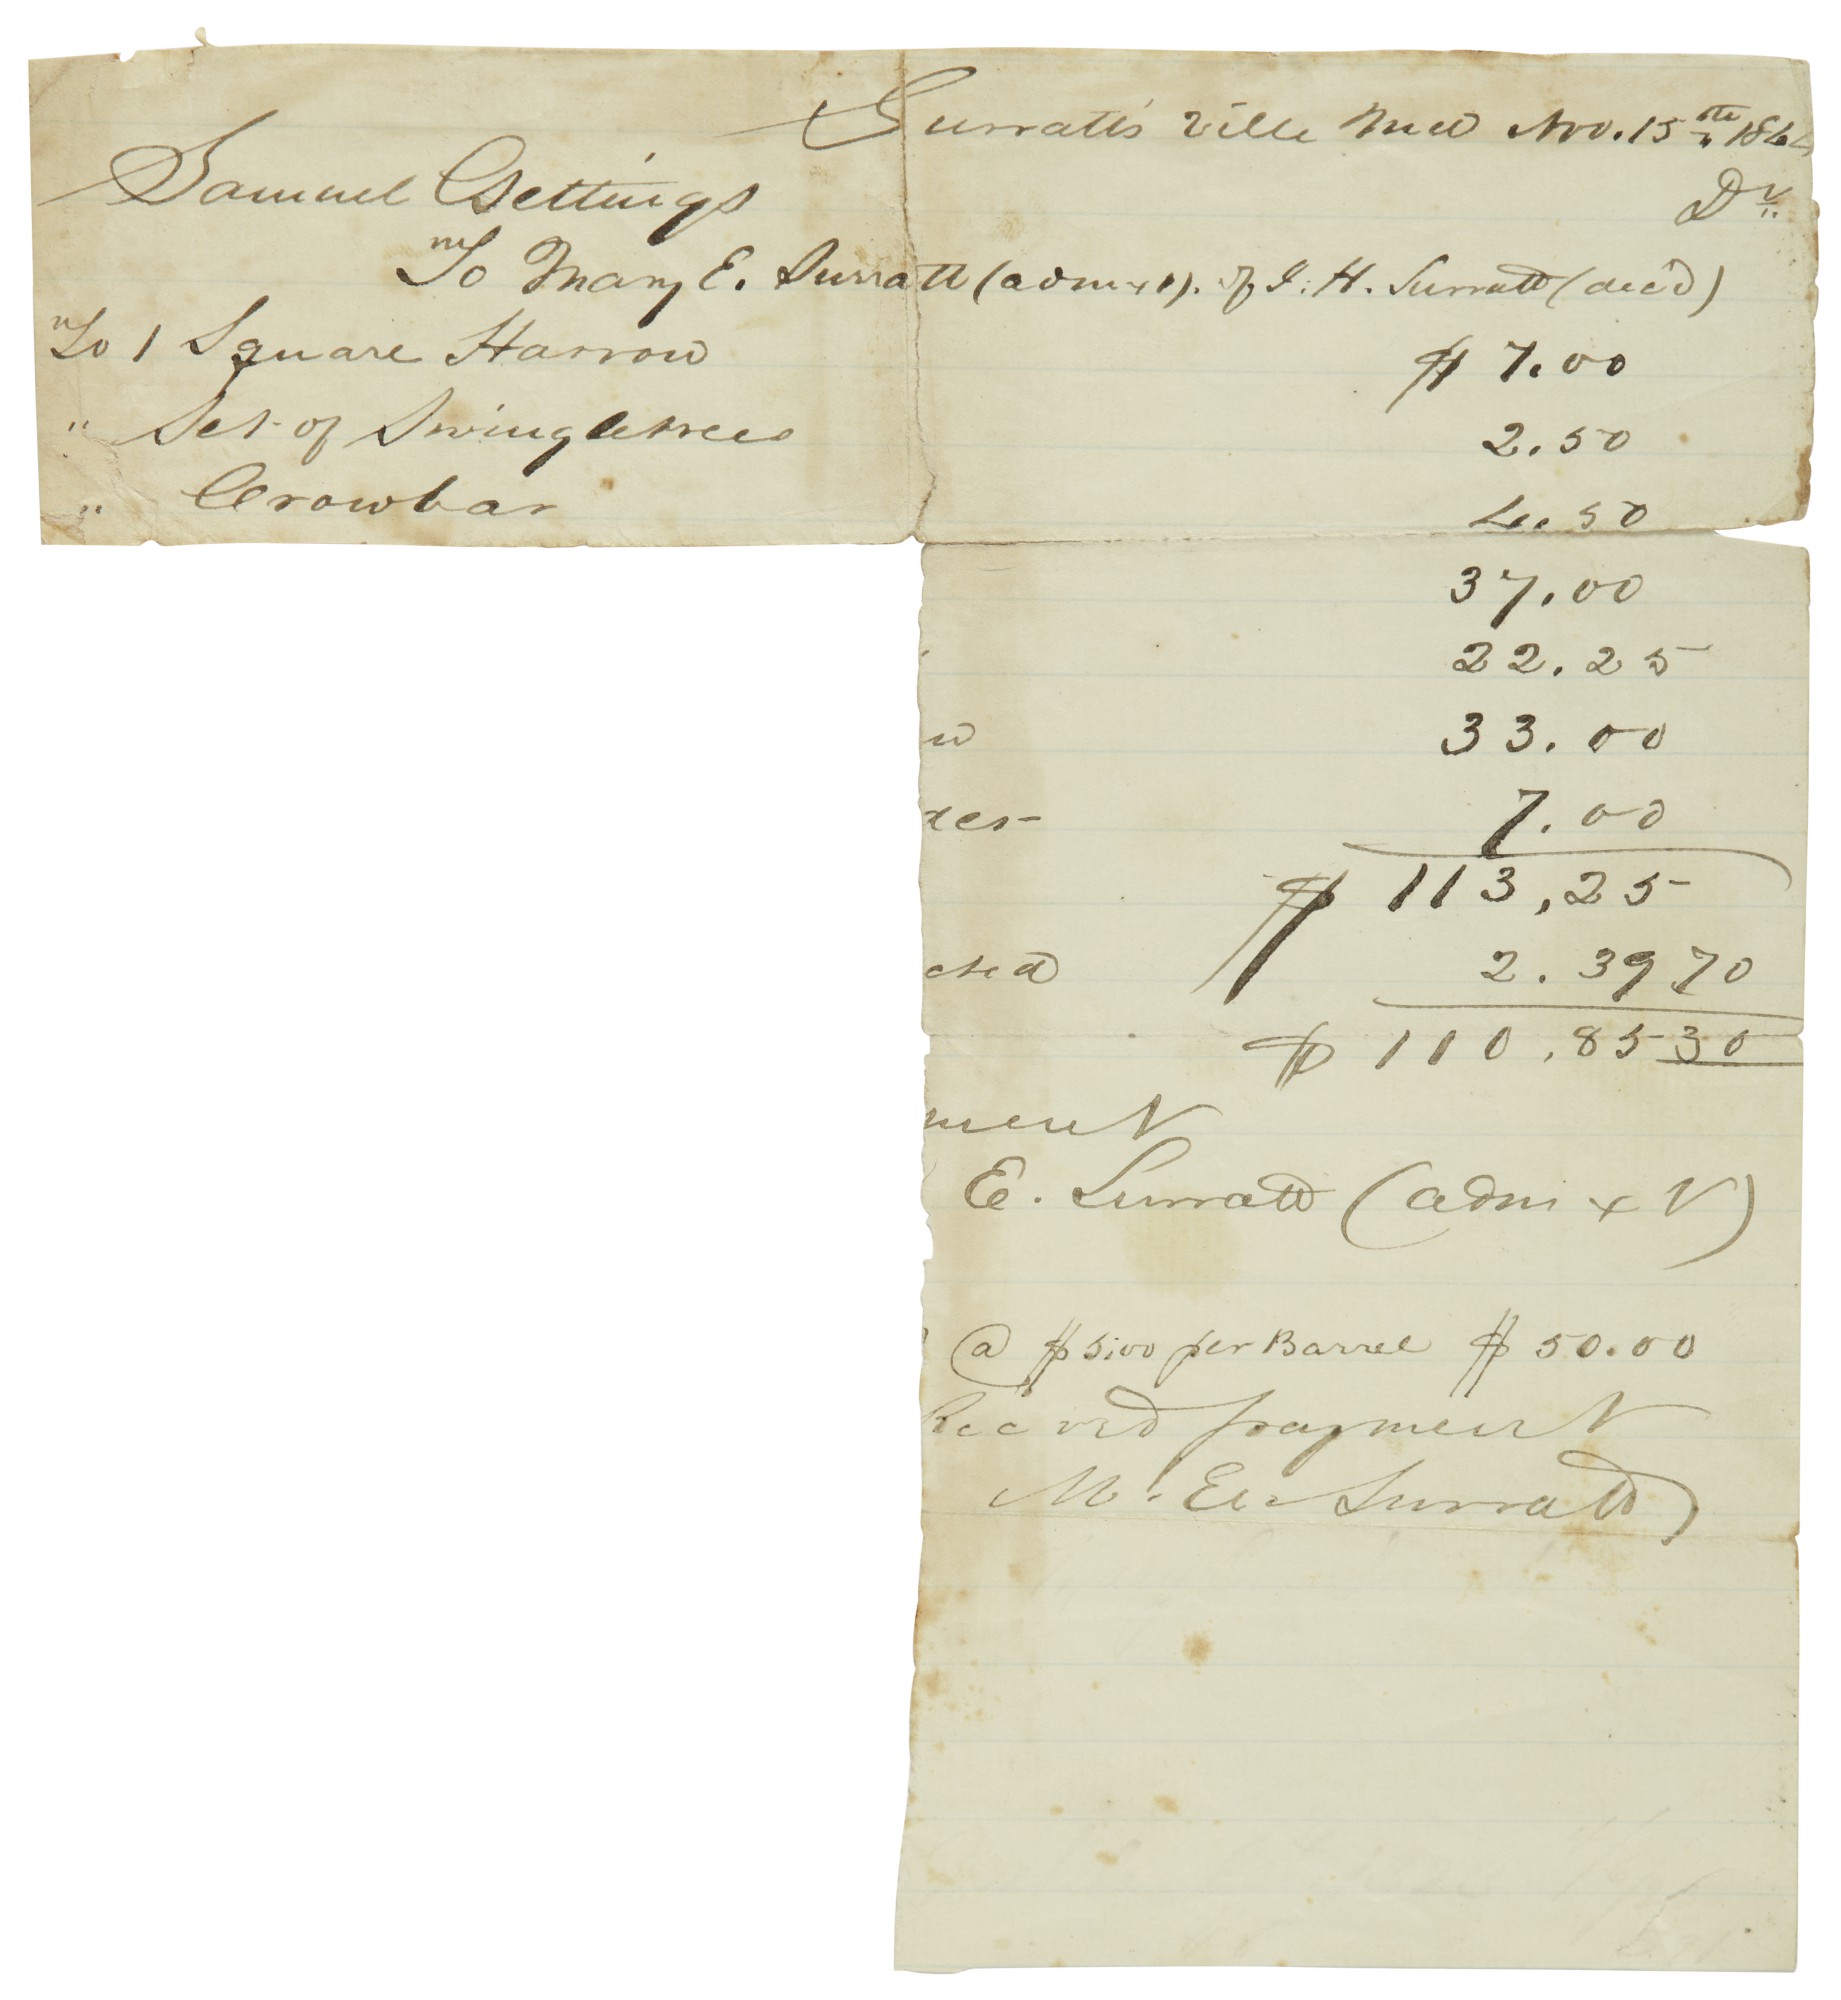 Surratt's Ville Md Nov. 15th 186
Samuel Gettings Dr
To Mary E. Surratt (admxt). of J. H. Surratt (dec'd)
To 1 Square Harrow $ 7.00
" Set of Swingletrees 2.50
" Crowbar 4.50
37.00
22.25
w 33.00
xes 7.00
$ 113,25
cted 2.3970
$ 110.8530
ment
E. Surratt (admxt)
@ $5.00 per Barrel $ 50.00
Recved payment
M. E. Surratt